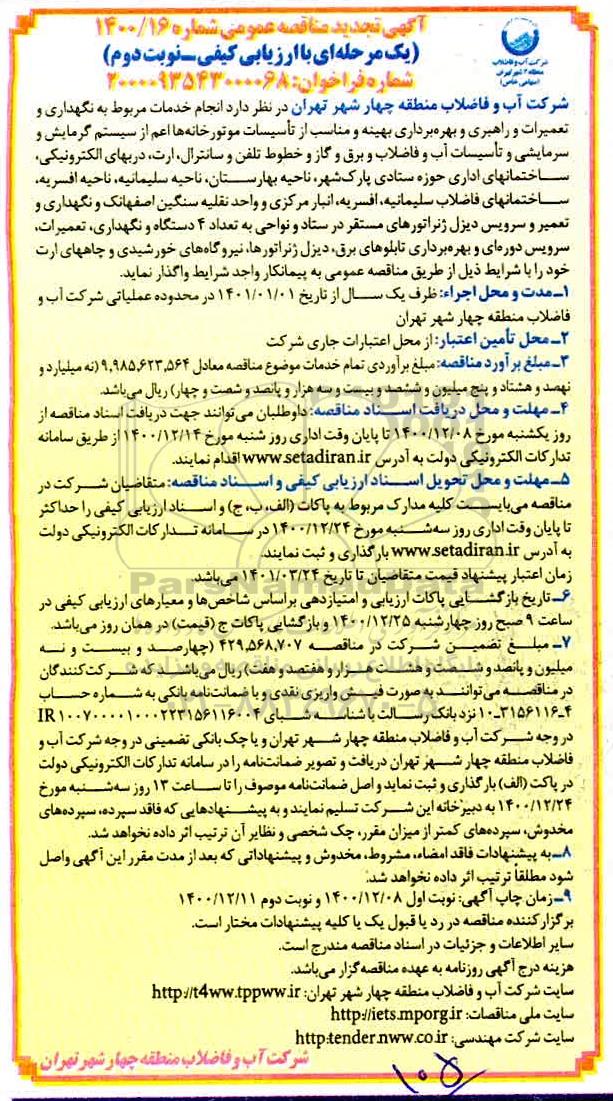 آگهی تجدید مناقصه عمومی شماره ۱۴۰۰/۱۶
(یک مرحله‌ای با ارزیابی کیفی ـ نوبت دوم)
شماره فراخوان: ۲۰۰۰۰۹۳۵۴۳۰۰۰۰۶۸
شرکت آب و فاضلاب
منطقه ۴ شهر تهران
(سهامی خاص)
شرکت آب و فاضلاب منطقه چهار شهر تهران در نظر دارد انجام خدمات مربوط به نگهداری و
تعمیرات و راهبری و بهره‌برداری بهینه و مناسب از تأسیسات موتورخانه‌ها اعم از سیستم گرمایش و
سرمایشی و تأسیسات آب و فاضلاب و برق و گاز و خطوط تلفن و سانترال، ارت، دربهای الکترونیکی،
ساختمانهای اداری حوزه ستادی پارک‌شهر، ناحیه بهارستان، ناحیه سلیمانیه، ناحیه افسریه،
ساختمانهای فاضلاب سلیمانیه، افسریه، انبار مرکزی و واحد نقلیه سنگین اصفهانک و نگهداری و
تعمیر و سرویس دیزل ژنراتورهای مستقر در ستاد و نواحی به تعداد ۴ دستگاه و نگهداری، تعمیرات،
سرویس دوره‌ای و بهره‌برداری تابلوهای برق، دیزل ژنراتورها، نیروگاه‌های خورشیدی و چاههای ارت
خود را با شرایط ذیل از طریق مناقصه عمومی به پیمانکار واجد شرایط واگذار نماید.
۱ـ مدت و محل اجراء: ظرف یک سال از تاریخ ۱۴۰۱/۰۱/۰۱ در محدوده عملیاتی شرکت آب و
فاضلاب منطقه چهار شهر تهران
۲ـ محل تأمین اعتبار: از محل اعتبارات جاری شرکت
۳ـ مبلغ برآورد مناقصه: مبلغ برآوردی تمام خدمات موضوع مناقصه معادل ۹,۹۸۵,۶۲۳,۵۶۴ (نه میلیارد و
نهصد و هشتاد و پنج میلیون و ششصد و بیست و سه هزار و پانصد و شصت و چهار) ریال می‌باشد.
۴ـ مهلت و محل دریافت اسناد مناقصه: داوطلبان می‌توانند جهت دریافت اسناد مناقصه از
روز یکشنبه مورخ ۱۴۰۰/۱۲/۰۸ تا پایان وقت اداری روز شنبه مورخ ۱۴۰۰/۱۲/۱۴ از طریق سامانه
تدارکات الکترونیکی دولت به آدرس www.setadiran.ir اقدام نمایند.
۵ـ مهلت و محل تحویل اسناد ارزیابی کیفی و اسناد مناقصه: متقاضیان شرکت در
مناقصه می‌بایست کلیه مدارک مربوط به پاکات (الف، ب، ج) و اسناد ارزیابی کیفی را حداکثر
تا پایان وقت اداری روز سه‌شنبه مورخ ۱۴۰۰/۱۲/۲۴ در سامانه تدارکات الکترونیکی دولت
به آدرس www.setadiran.ir بارگذاری و ثبت نمایند.
زمان اعتبار پیشنهاد قیمت متقاضیان تا تاریخ ۱۴۰۱/۰۳/۲۴ می‌باشد.
۶ـ تاریخ بازگشایی پاکات ارزیابی و امتیازدهی براساس شاخص‌ها و معیارهای ارزیابی کیفی در
ساعت ۹ صبح روز چهارشنبه ۱۴۰۰/۱۲/۲۵ و بازگشایی پاکات ج (قیمت) در همان روز می‌باشد.
۷ـ مبلغ تضمین شرکت در مناقصه ۴۲۹,۵۶۸,۷۰۷ (چهارصد و بیست و نه
میلیون و پانصد و شصت و هشت هزار و هفتصد و هفت) ریال می‌باشد که شرکت‌کنندگان
در مناقصه می‌توانند به صورت فیش واریزی نقدی و یا ضمانت‌نامه بانکی به شماره حساب
۱۰-۳۱۵۶۱۱۶-۴ نزد بانک رسالت با شناسه شبای IR۱۰۰۷۰۰۰۰۱۰۰۰۲۲۳۱۵۶۱۱۶۰۰۴
در وجه شرکت آب و فاضلاب منطقه چهار شهر تهران و یا چک بانکی تضمینی در وجه شرکت آب و
فاضلاب منطقه چهار شهر تهران دریافت و تصویر ضمانت‌نامه را در سامانه تدارکات الکترونیکی دولت
در پاکت (الف) بارگذاری و ثبت نماید و اصل ضمانت‌نامه موصوف را تا ساعت ۱۳ روز سه‌شنبه مورخ
۱۴۰۰/۱۲/۲۴ به دبیرخانه این شرکت تسلیم نمایند و به پیشنهادهایی که فاقد سپرده، سپرده‌های
مخدوش، سپرده‌های کمتر از میزان مقرر، چک شخصی و نظایر آن ترتیب اثر داده نخواهد شد.
۸ـ به پیشنهادات فاقد امضاء، مشروط، مخدوش و پیشنهاداتی که بعد از مدت مقرر این آگهی واصل
شود مطلقاً ترتیب اثر داده نخواهد شد.
۹ـ زمان چاپ آگهی: نوبت اول ۱۴۰۰/۱۲/۰۸ و نوبت دوم ۱۴۰۰/۱۲/۱۱
برگزارکننده مناقصه در رد یا قبول یک یا کلیه پیشنهادات مختار است.
سایر اطلاعات و جزئیات در اسناد مناقصه مندرج است.
هزینه درج آگهی روزنامه به عهده مناقصه‌گزار می‌باشد.
سایت شرکت آب و فاضلاب منطقه چهار شهر تهران: http://t4ww.tppww.ir
سایت ملی مناقصات: http://iets.mporg.ir
سایت شرکت مهندسی: http:tender.nww.co.ir
شرکت آب و فاضلاب منطقه چهار شهر تهران